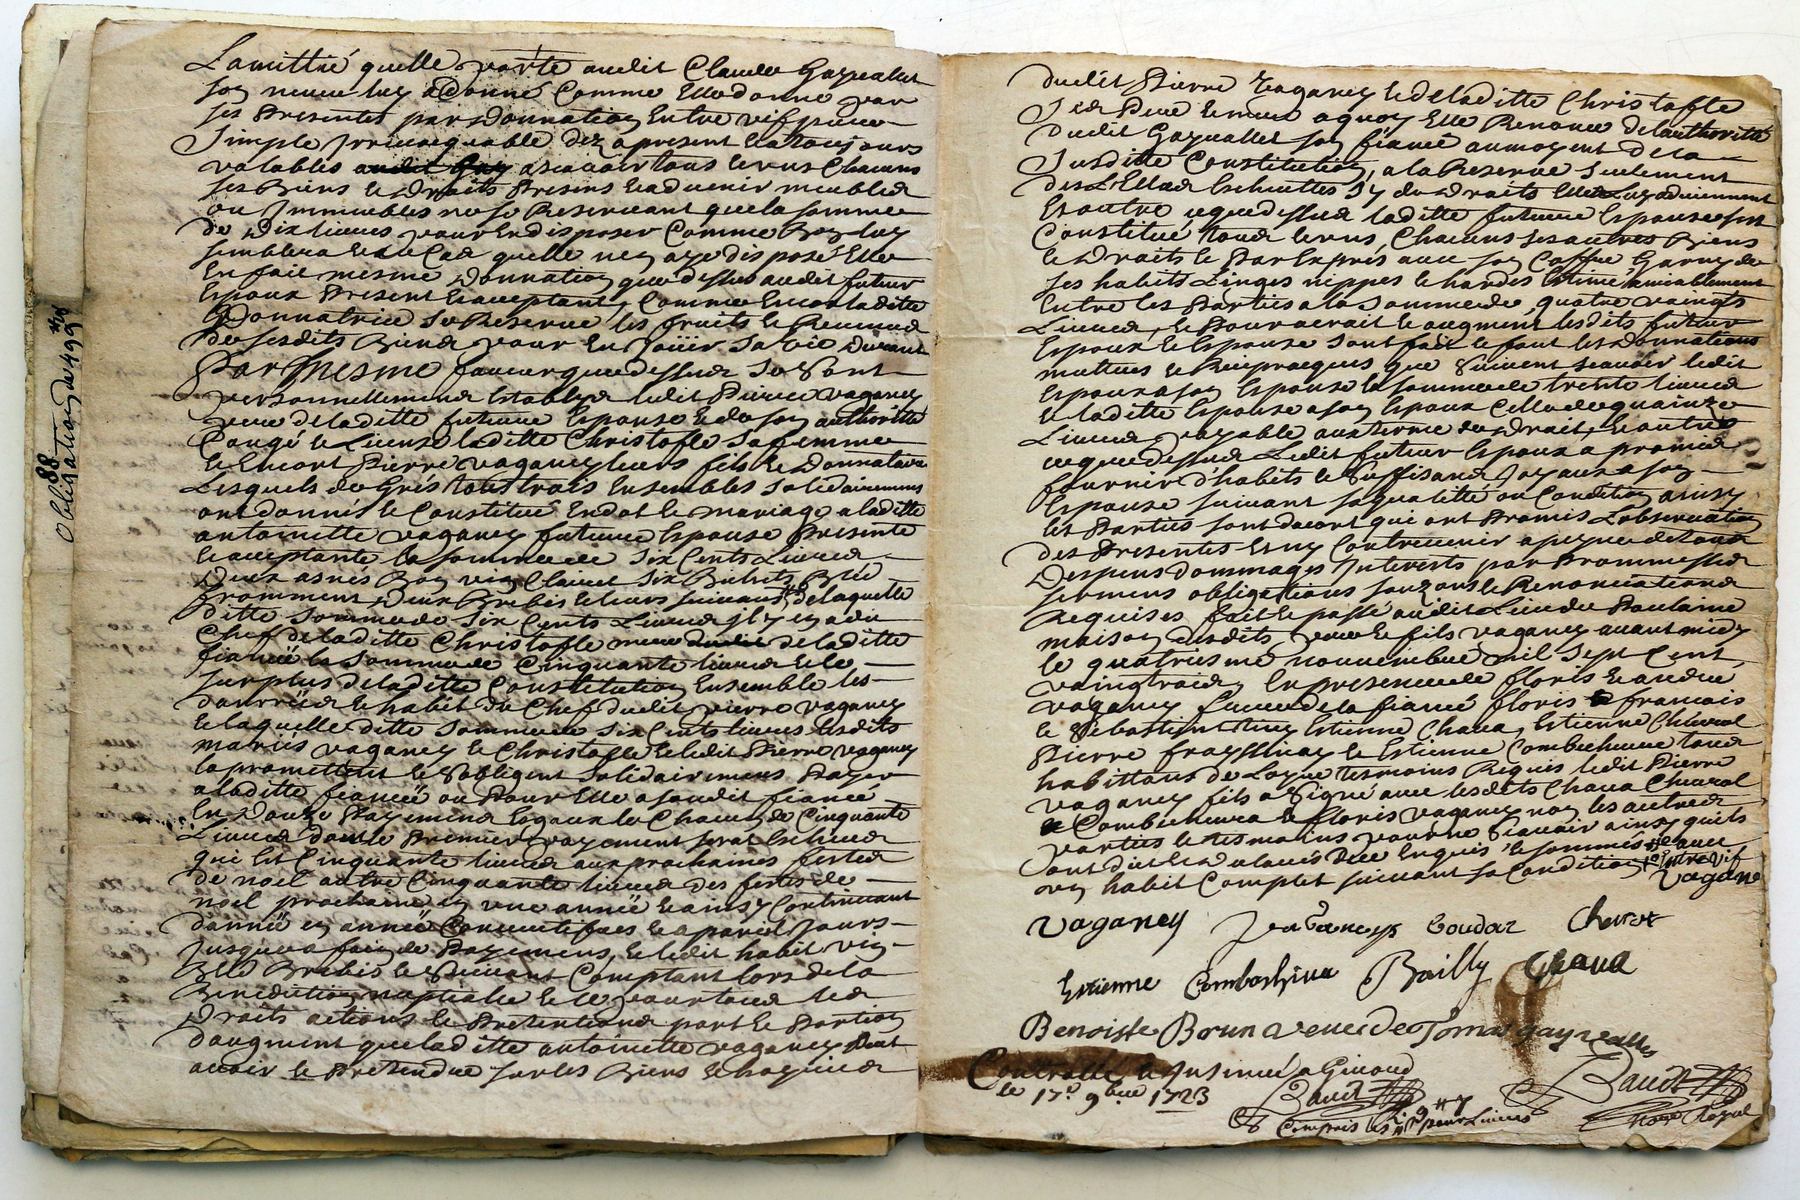 Lamittié quelle porte audit Claude Gazeallet
son neveu luy a Donné Comme Elle donne par
ses Presentes par donnation Entre vif pure
Simple Irrevocquable dez a present Et a tousjours
valables a scavoir tous Et uns Chacuns
ses Biens Et Droits Presens Et advenir meubles
ou Immeubles ne se Reservant que la somme
de Dix livres pour En disposer Comme Bon luy
semblera Et le Cas quelle nen aye disposé Elle
En fait mesme Donnation que dessus audit futeur
Espoux Present Et acceptant, Comme Encor laditte
Donnatrice se Reserve les fruits Et Revenus
de sesdits Biens pour En Joüir sa vie Durant
Par Mesme faveur que dessus se sont
personnellement Establys ledit Pierre vaganey
pere de laditte future Espouse Et de son authoritté
Congé Et License laditte Christofle sa femme
Et Encor Pierre vaganey leurs fils Et Donnataire
Lesquels de Grés tous trois Ensembles solidairement
ont donnés Et Constitué En dot Et mariage a laditte
antoinette vaganey future Espouse Presente
Et acceptante la somme de Six Cents Livres
Deux asnés Bon vin Clairet six Bichets Bled
fromment Deux Brebis Et leurs suivans de laquelle
ditte somme de Six Cents Livres il y en a du
Chef de laditte Christofle mere de laditte
fiancée la somme de Cinquante livres Et le
surplus de laditte Constitution Ensemble les
danrrées Et habit du Chef dudit pierre vaganey
Et laquelle ditte somme de Six Cents livres lesdits
mariés vaganey Et Christofle Et ledit Pierre vaganey
la promettent Et sobligent solidairement Payer
a laditte fiancée ou Pour Elle a sondit fiancé
En Douze Payemens Esgaux de Chacun de Cinquante
Livres dont le Premier payement serat Escheus
qui Est Cinquante livres aux prochaines festes
de noel autre Cinquante livres des festes de
noel prochaine en une année Et ainsy Continuant
dannée en année Consecutifves Et a pareil Jours
Jusques a fin de Payemens, Et ledit habit vin
Bled Brebis Et Suivant Comptant lors de la
Benediction nuptialle Et Ce pour tous les
Droits actions Et Pretentions part Et Portion
daugment que laditte antoinette vaganey Peut
avoir Et Pretendre sur les Biens Et hoyries
88
Obligation de 499# 10s
dudit Pierre vaganey Et de laditte Christofle
Ses Pere Et mere a quoy Elle Renonce de lauthoritté
dudit Gazeallet son fiancé au moyent de la
Susditte Constitution, a la Reserve seulement
des Lelles Escheuttes sy de Droits Luy adviennent
Et outre ce que dessus laditte future Espouse sest
Constitué tous Et uns, Chacuns ses autres Biens
Et Droits Et Par Exprés avec son Coffre Garny de
ses habits Linges nippes Et hardes Estimé amiablement
Entre les Parties a la somme de quatre vaingts
Livres, Et Pour acroit Et augment lesdits futeur
Espoux Et Espouse sont fait Et font les Donnations
mutues Et Reciprocques que Suivent scavoir ledit
Espoux a son Espouse la somme de trente livres
Et laditte Espouse a son Espoux Celle de quainze
Livres payable au terme du Droit, Et outre
ce que dessus Ledit futeur Espoux a promis
fournir d'habits Et Suffisans Joyaux a son
Espouse suivant sa qualitté ou Condition ainsy
les Parties sont dacort qui ont Promis L'observation
des Presentes Et ny Contrevenir a peyne de tous
Despens dommages Interests par Prommesses
sermens obligations Renonciations
Requises fait Et passé audit Lieu du Poulaine
maison desdits pere Et fils vaganey avant midy
le quatriesme nouvembre mil sept Cent
vaingt trois, En presence de floris Et andré
vaganey freres de la fiancé floris francois
Et Sebastient Estienne Chava, Estienne Cheurol
Pierre frayssinay Et Estienne Combechieure tous
habittans de Loyre tesmoins Requis ledit Pierre
vaganey fils a signé avec lesdits Chava Cheurol
Combechieures Et floris vaganey non les autres
parties Et tesmoins pour ne Scavoir ainsy quils
ont dit Et de ce Enquis Et sommés Et avec
un habit Complet suivant sa Condition
vagane
vaganey Jean francoys boudar Cheurot
Estienne Combachiva Bailly Chava
Benoiste Brun veuve de Tomas gayzeallet
Controllé Et Insinué a Givord
le 17e 9bre 1723 Baudt Baudt
Compris les pour Livres Nore Royal